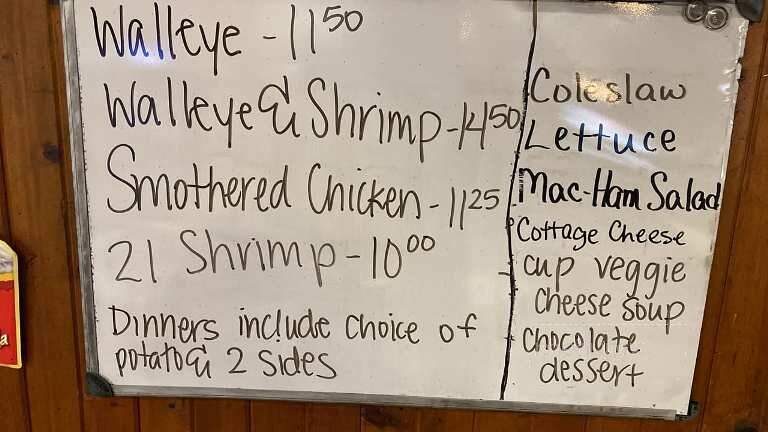 Walleye - 11⁵⁰
Walleye & Shrimp - 14⁵⁰
Smothered Chicken - 11²⁵
21 Shrimp - 10⁰⁰
Dinners include choice of
potato & 2 sides
Coleslaw
Lettuce
Mac-Ham Salad
Cottage Cheese
cup veggie
cheese soup
chocolate
dessert